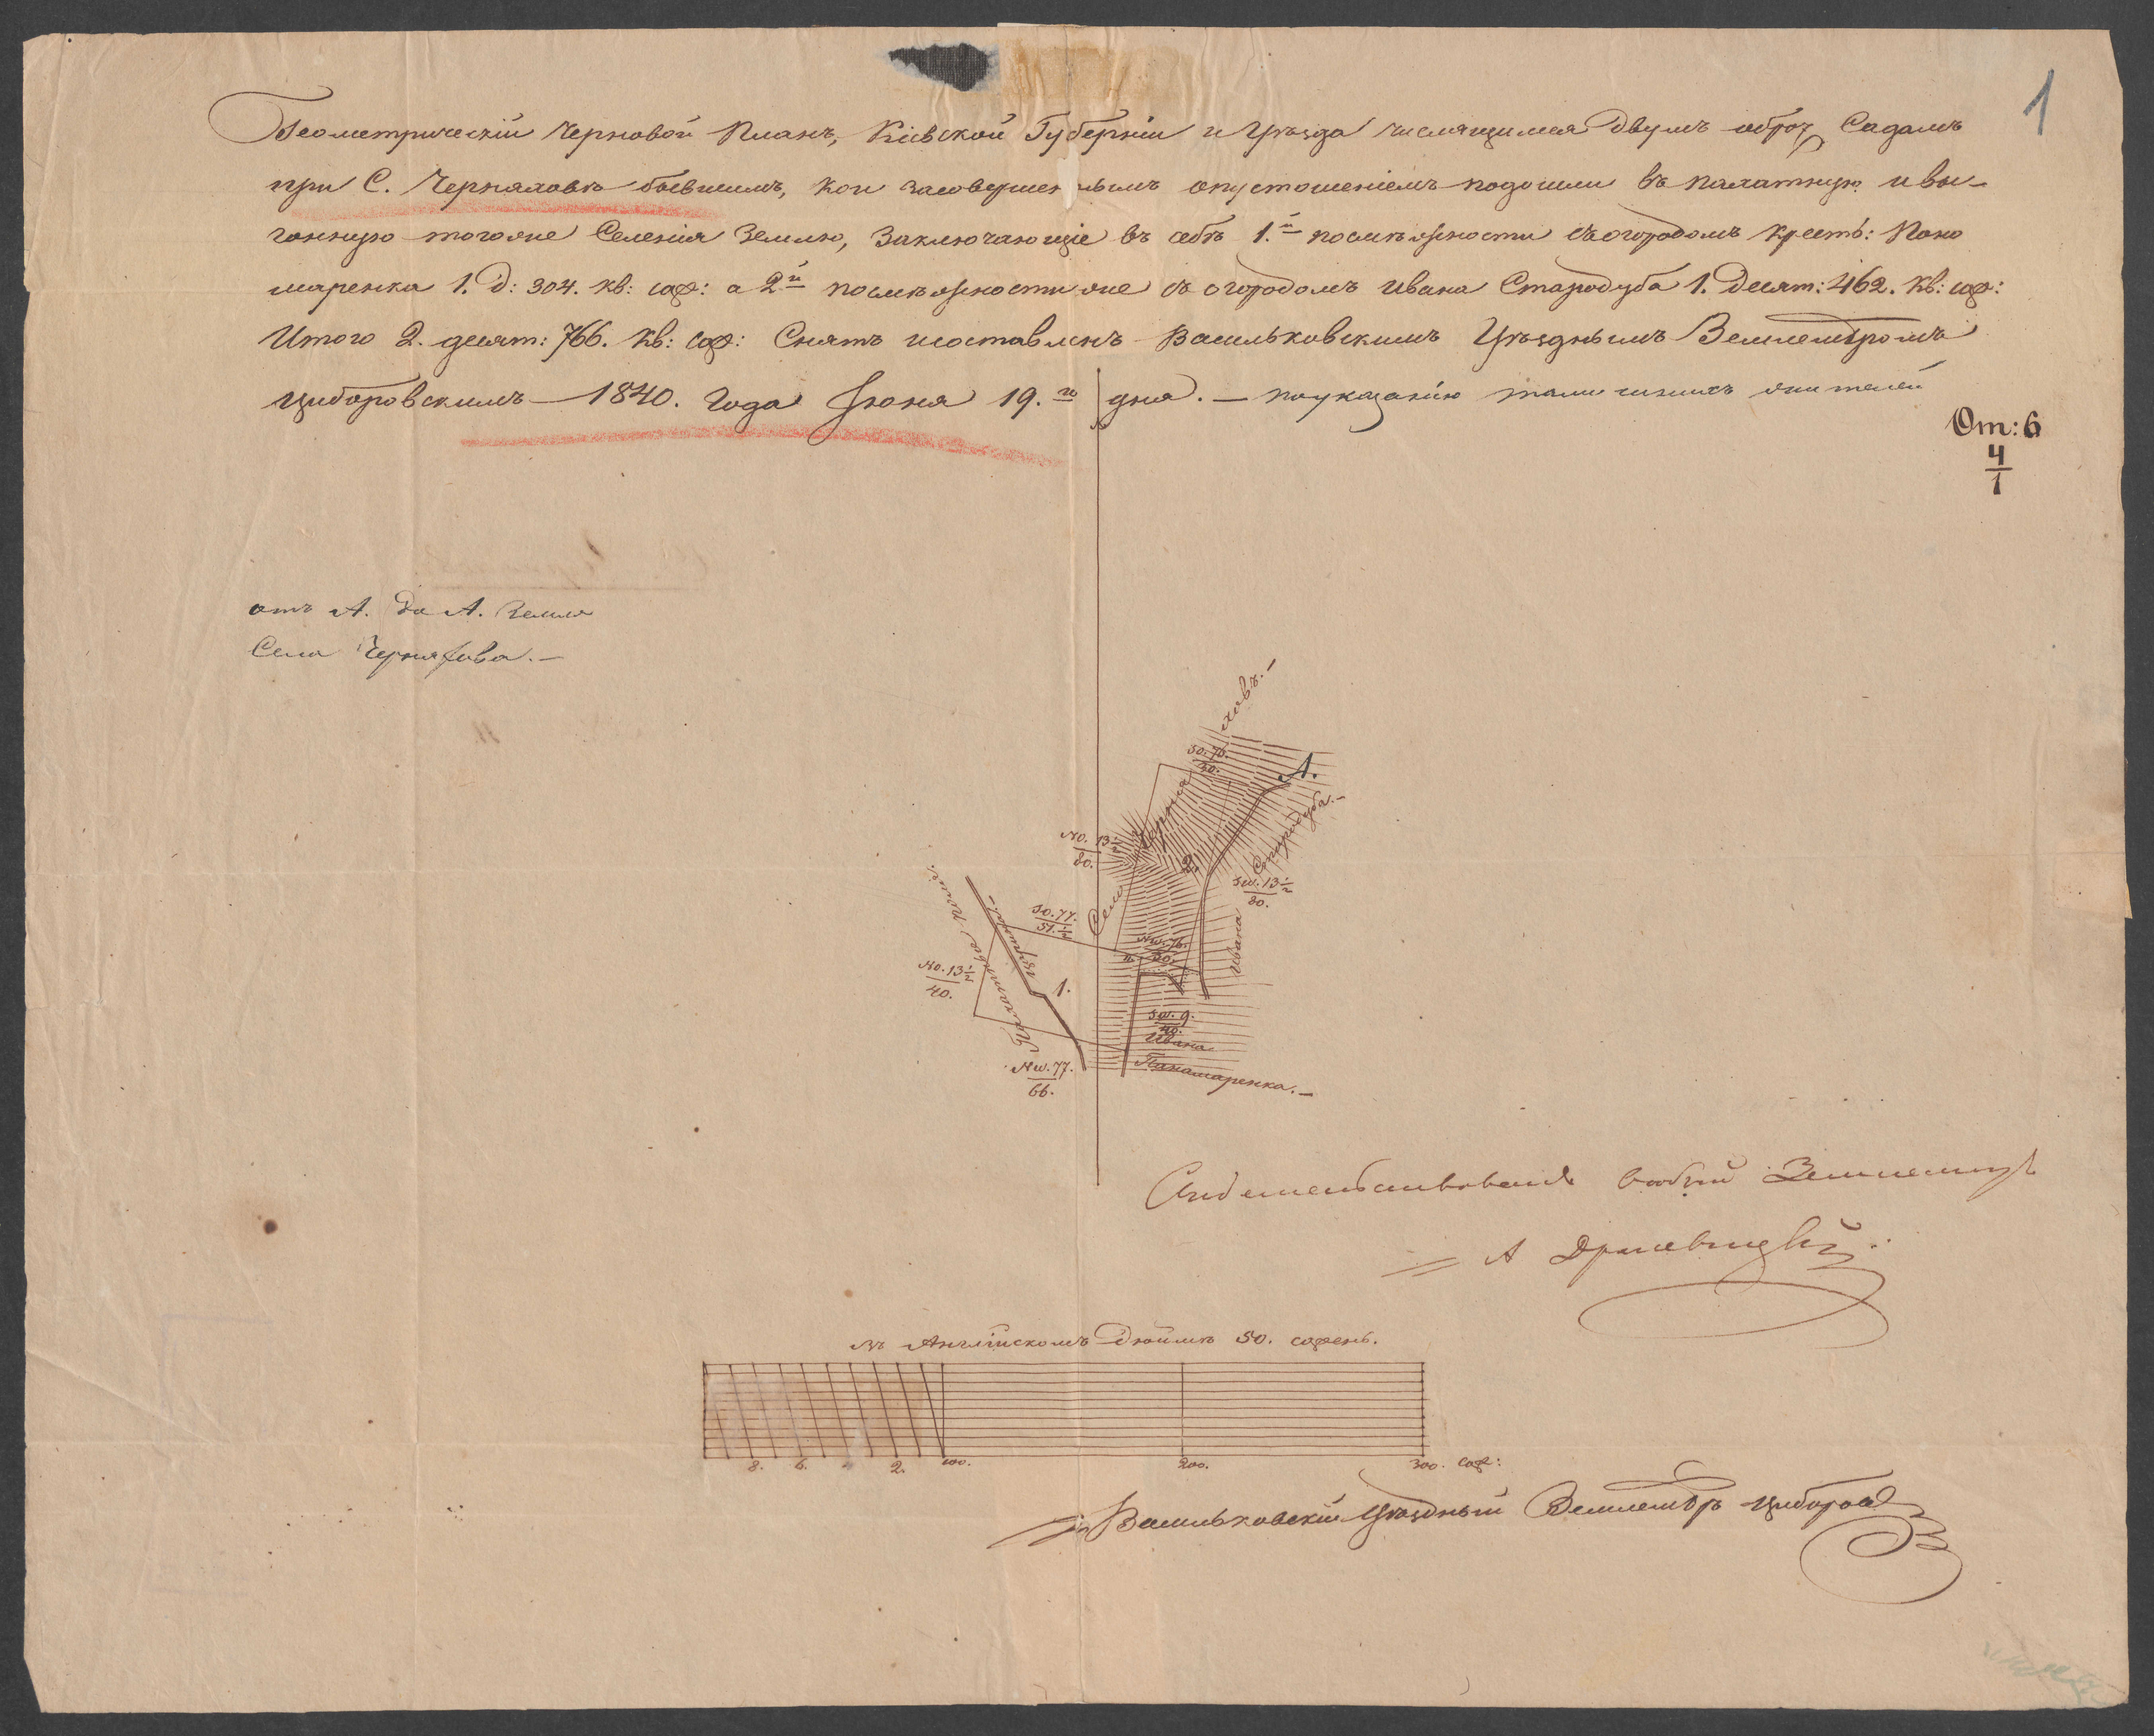 1
Геометрическій Черновой Планъ, Кіевской Губерніи и Уѣзда числящимся двумъ оброч. Садамъ
при С. Черняховѣ бывшимъ, кои засовершеннымъ опустошеніемъ подошли въ пахатную ивы-
гонную тогоже Селенія Землю, Заключающіе въ себѣ 1.й посмѣжности съогородомъ крестъ: Поно
маренка 1. д: 304. кв: саж: а 2й посмѣжностиже съ огородомъ Ивана Стародуба 1. Десят: 462. кв: саж:
Итого 2. десят: 766. кв: саж: Снятъ исоставленъ Васильковскимъ Уѣзднымъ Землемѣромъ
Циборовскимъ 1840. Года Іюня 19.го дня. — поуказанію тамошнихъ жителей
От: 6
4
1
отъ А. До А. Земля
Села Черняхова. —
Село Черня ховъ.
SO. 76.
30.
А.
NO. 13½
80.
2.
Ивана Стародуба. —
SW. 13½
80.
SO. 77.
51.½
NW. 76.
30.
NO. 13½
40.
1.
SW. 9.
40.
Ивана
Панамаренка. —
NW. 77.
66.
Свидетельствовалъ Землемиръ
А
Въ Англійскомъ Дюймѣ 50. сажень.
8. 6. 2. 100. 200. 300. саж:
Васильковскій Уѣздный Землемѣръ Циборов